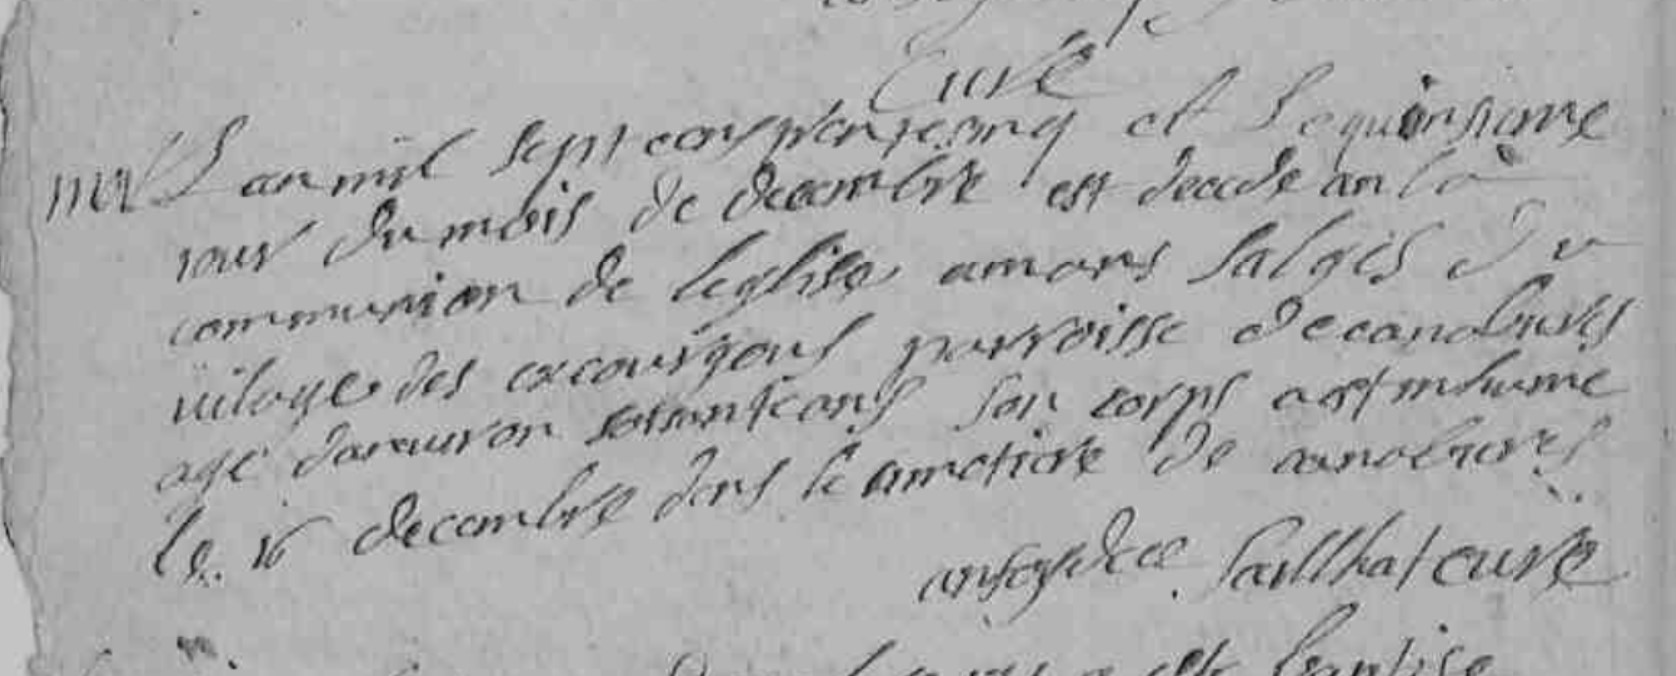 Curé
L an mil sept cens trante cinq et le quinsieme
iour du mois de decembre est decede en la
communion de leglise amans salgés du
vilage des escourgous parroisse de canabieres
agé danviron sessante ans son corps a est inhume
le 16 decembre dans le cimetiere de canabieres
en foy de ce Sailhat curé
a esté baptise